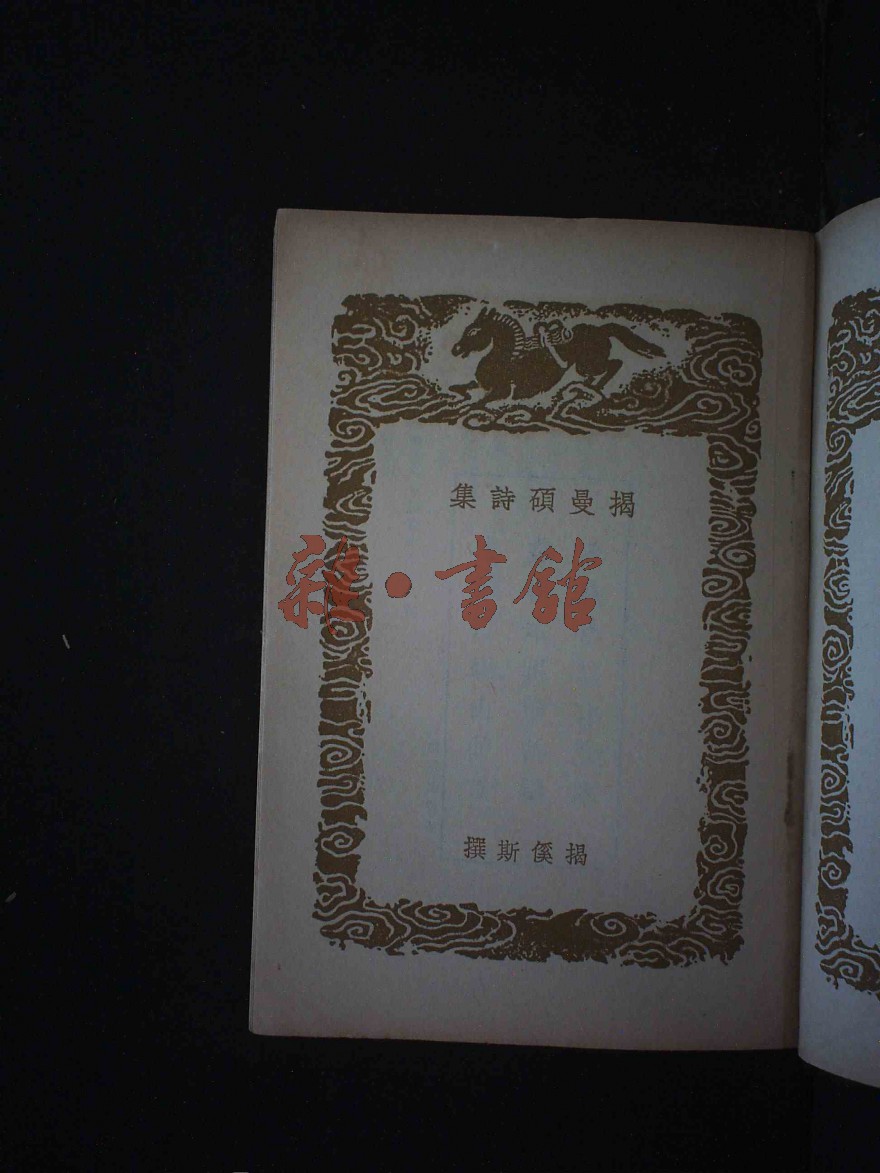 揭曼碩詩集
雜·書館
揭傒斯撰